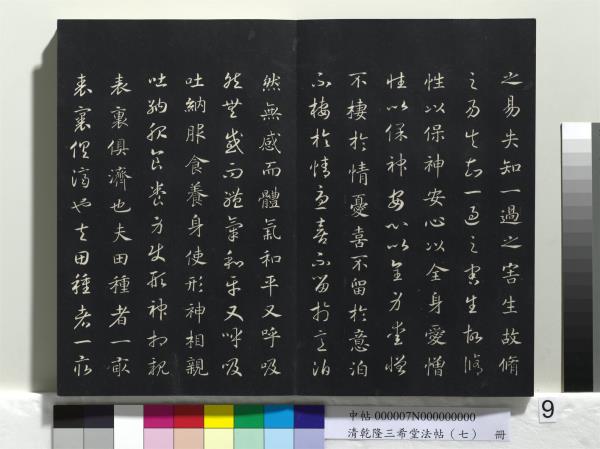 之易失知一過之害生故脩
之易失知一過之害生故脩
性以保神安心以全身愛憎
性以保神安心以全身愛憎
不棲於情憂喜不留於意泊
不棲於情憂喜不留於意泊
然無感而體氣和平又呼吸
然無感而體氣和平又呼吸
吐納服食養身使形神相親
吐納服食養身使形神相親
表裏俱濟也夫田種者一畝
表裏俱濟也夫田種者一畝
中帖 000007N000000000
清乾隆三希堂法帖（七） 冊
9